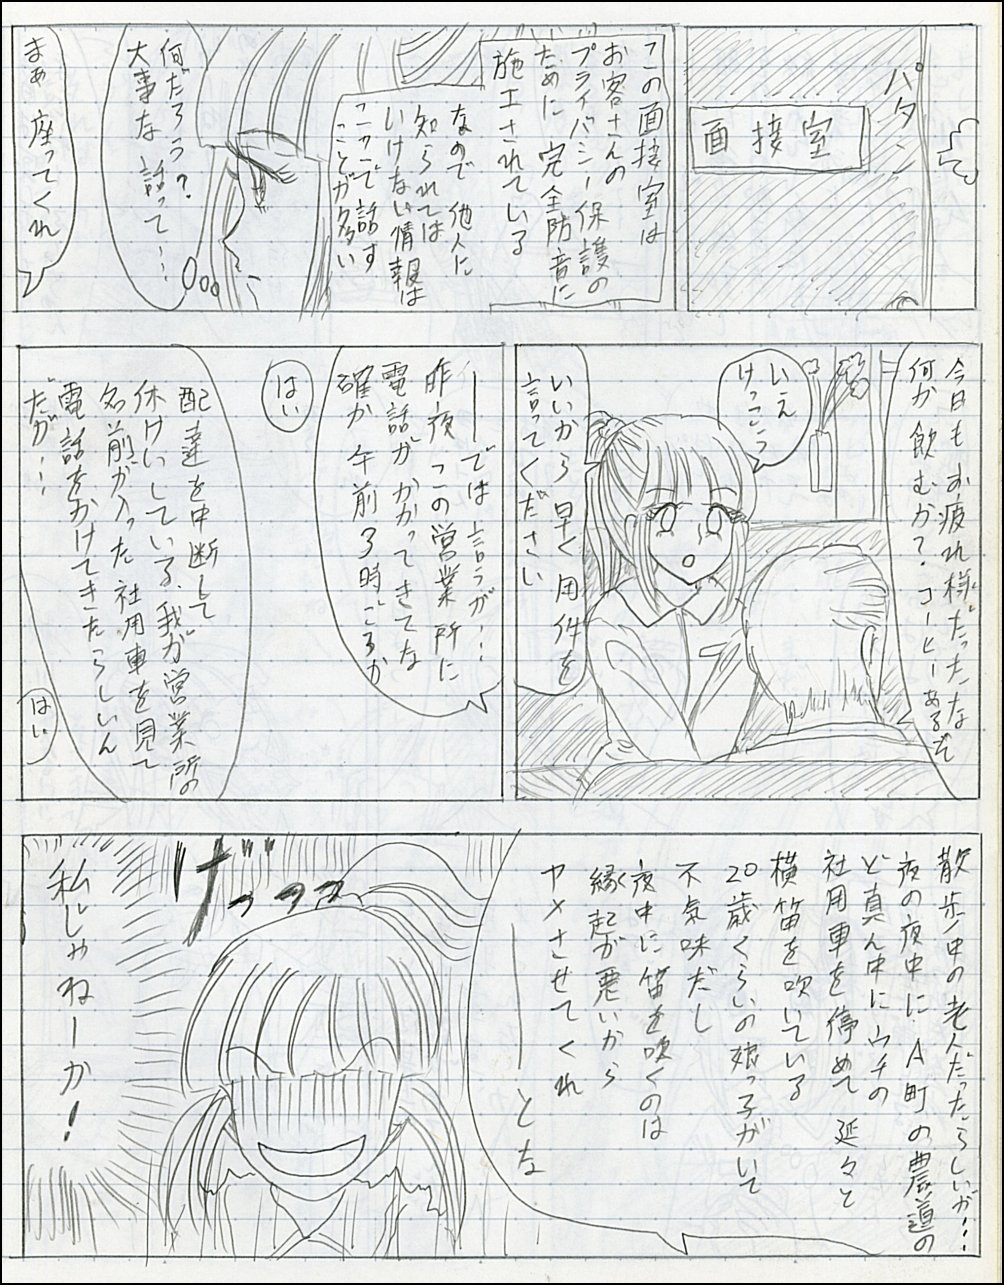 パタン
面接室
この面接室は
お客さんの
プライバシー保護の
ために完全防音に
施工されている
なので他人に
知られては
いけない情報は
ここで話す
ことが多い
何だろう?
大事な話って…
まぁ座ってくれ
今日もお疲れ様だったな
何か飲むか?コーヒーあるぞ
いえ
けっこう
いいから早く用件を
言ってください
―では言うが…
昨夜この営業所に
電話がかかってきてな
確か午前3時ごろか
はい
配達を中断して
休けいしている、我が営業所の
名前が入った社用車を見て
電話をかけてきたらしいん
だが…
はい
散歩中の老人だったらしいが…
夜の夜中にA町の農道の
ど真ん中にウチの
社用車を停めて延々と
横笛を吹いている
20歳くらいの娘っ子がいて
不気味だし
夜中に笛を吹くのは
縁起が悪いから
ヤメさせてくれ
―――とな
げっっっ
私じゃねーか!